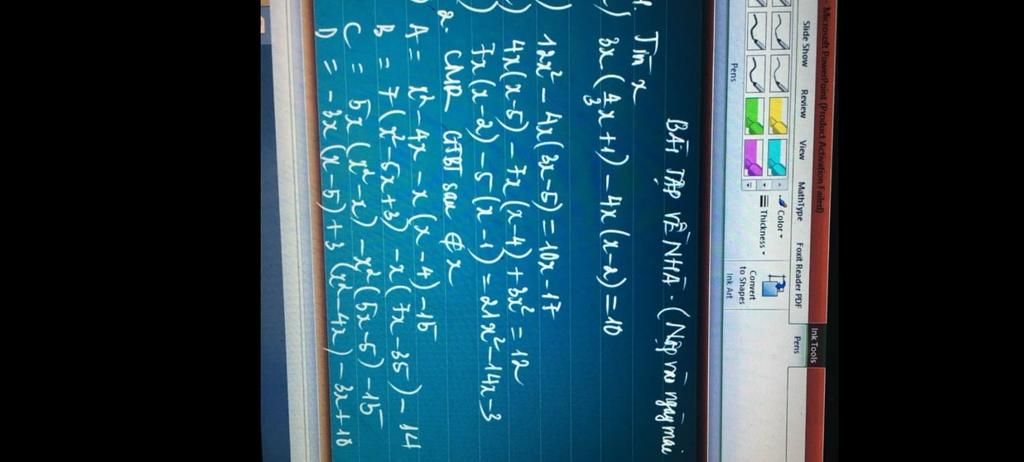 Microsoft PowerPoint (Product Activation Failed)
Ink Tools
Slide Show Review View MathType Foxit Reader PDF Pens
Color
Thickness
Convert to Shapes
Pens
Ink Art
BÀI TẬP VỀ NHÀ. (Nộp vào ngày mai
1. Tìm x
) 3x(4/3x+1) - 4x(x-2) = 10
) 12x² - 4x(3x-5) = 10x - 17
) 4x(x-5) - 7x(x-4) + 3x² = 12
) 7x(x-2) - 5(x-1) = 21x² - 14x - 3
2. CMR GTBT sau ∉ x
) A = x² - 4x - x(x-4) - 15
B = 7(x² - 5x + 3) - x(7x - 35) - 14
C = 5x(x² - x) - x²(5x - 5) - 15
D = -3x(x-5) + 3(x² - 4x) - 3x + 10